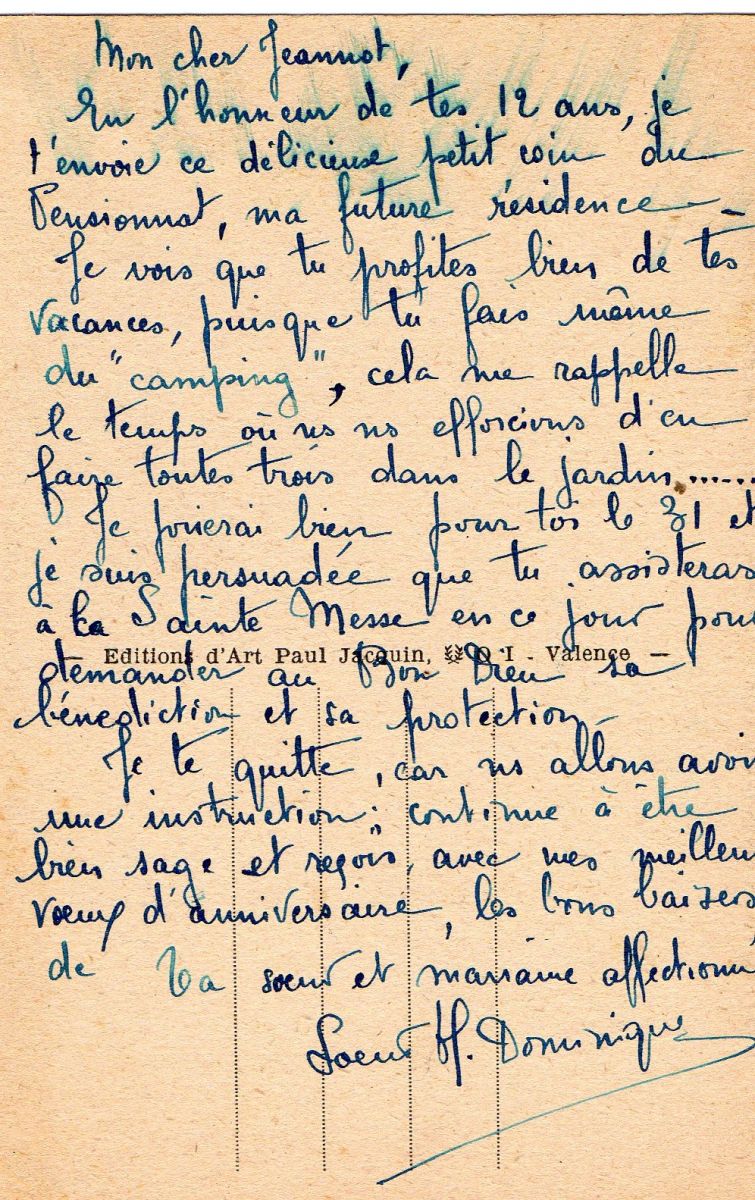 Mon cher Jeannot,
En l'honneur de tes 12 ans, je
t'envoie ce délicieuse petit coin du
Pensionnat, ma future résidence_
Je vois que tu profites bien de tes
vacances, puisque tu fais même
du "camping", cela me rappelle
le temps où ns ns efforcions d'en
faire toutes trois dans le jardin......
Je prierai bien pour toi le 31 et
je suis persuadée que tu assisteras
à la Sainte Messe en ce jour pour
Editions d'Art Paul Jacquin, O I - Valence —
demander au Bon Dieu sa
bénédiction et sa protection_
Je te quitte, car ns allons avoir
une instruction; continue à être
bien sage et reçois, avec mes meilleu
vœux d'anniversaire, les bons baisers
de Ta soeur et marraine affectionn
Soeur M. Dominique